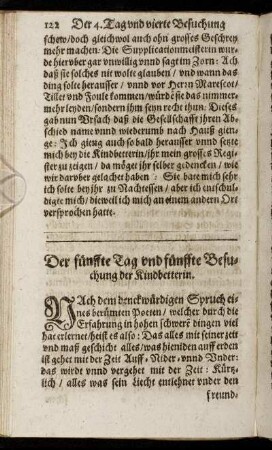 122 Der 4. Tag vnd vierte Besuchung
schew/doch gleichwol auch ohn grosses Geschrey
mehr machen: Die Supplicationmeisterin wur-
de hierüber gar vnwillig vnnd sagt im Zorn: Ach
daß sie solches nit wolte glauben / vnd wann das
ding solte herausser / vnnd vor Herrn Marescot/
Tiller vnd Foule kommen/würd es sie das nimmer-
mehr leyden/sondern ihm seyn recht thun: Dieses
gab nun Vrsach daß die Gesellschafft ihren Ab-
schied name vnnd wiederumb nach Hauß gien-
ge: Ich gieng auch so bald herausser vnnd setzte
mich bey die Kindbetterin/ihr mein grosses Regi-
ster zu zeigen / da möge ihr selber gedencken / wie
wir darvber gelachet haben : Sie bate mich sehr
ich solte bey ihr zu Nachtessen / aber ich entschul-
digte mich / dieweil ich mich an einem andern Ort
versprochen hatte.
Der fünffte Tag vnd fünffte Besu-
chung der Kindbetterin.
NAch dem denckwürdigen Spruch ei-
nes berümten Poeten / welcher durch die
Erfahrung in hohen schwere dingen viel
hat erlernet/heist es also : Das alles mit seiner zeit
vnd maß geschicht alles/was hieniden auff erden
ist gehet mit der Zeit Auff. Nider. vnnd Vnder:
das wirdt vnnd vergehet mit der Zeit: Kürtz-
lich / alles was sein Liecht entlehnet vnder den
freund-